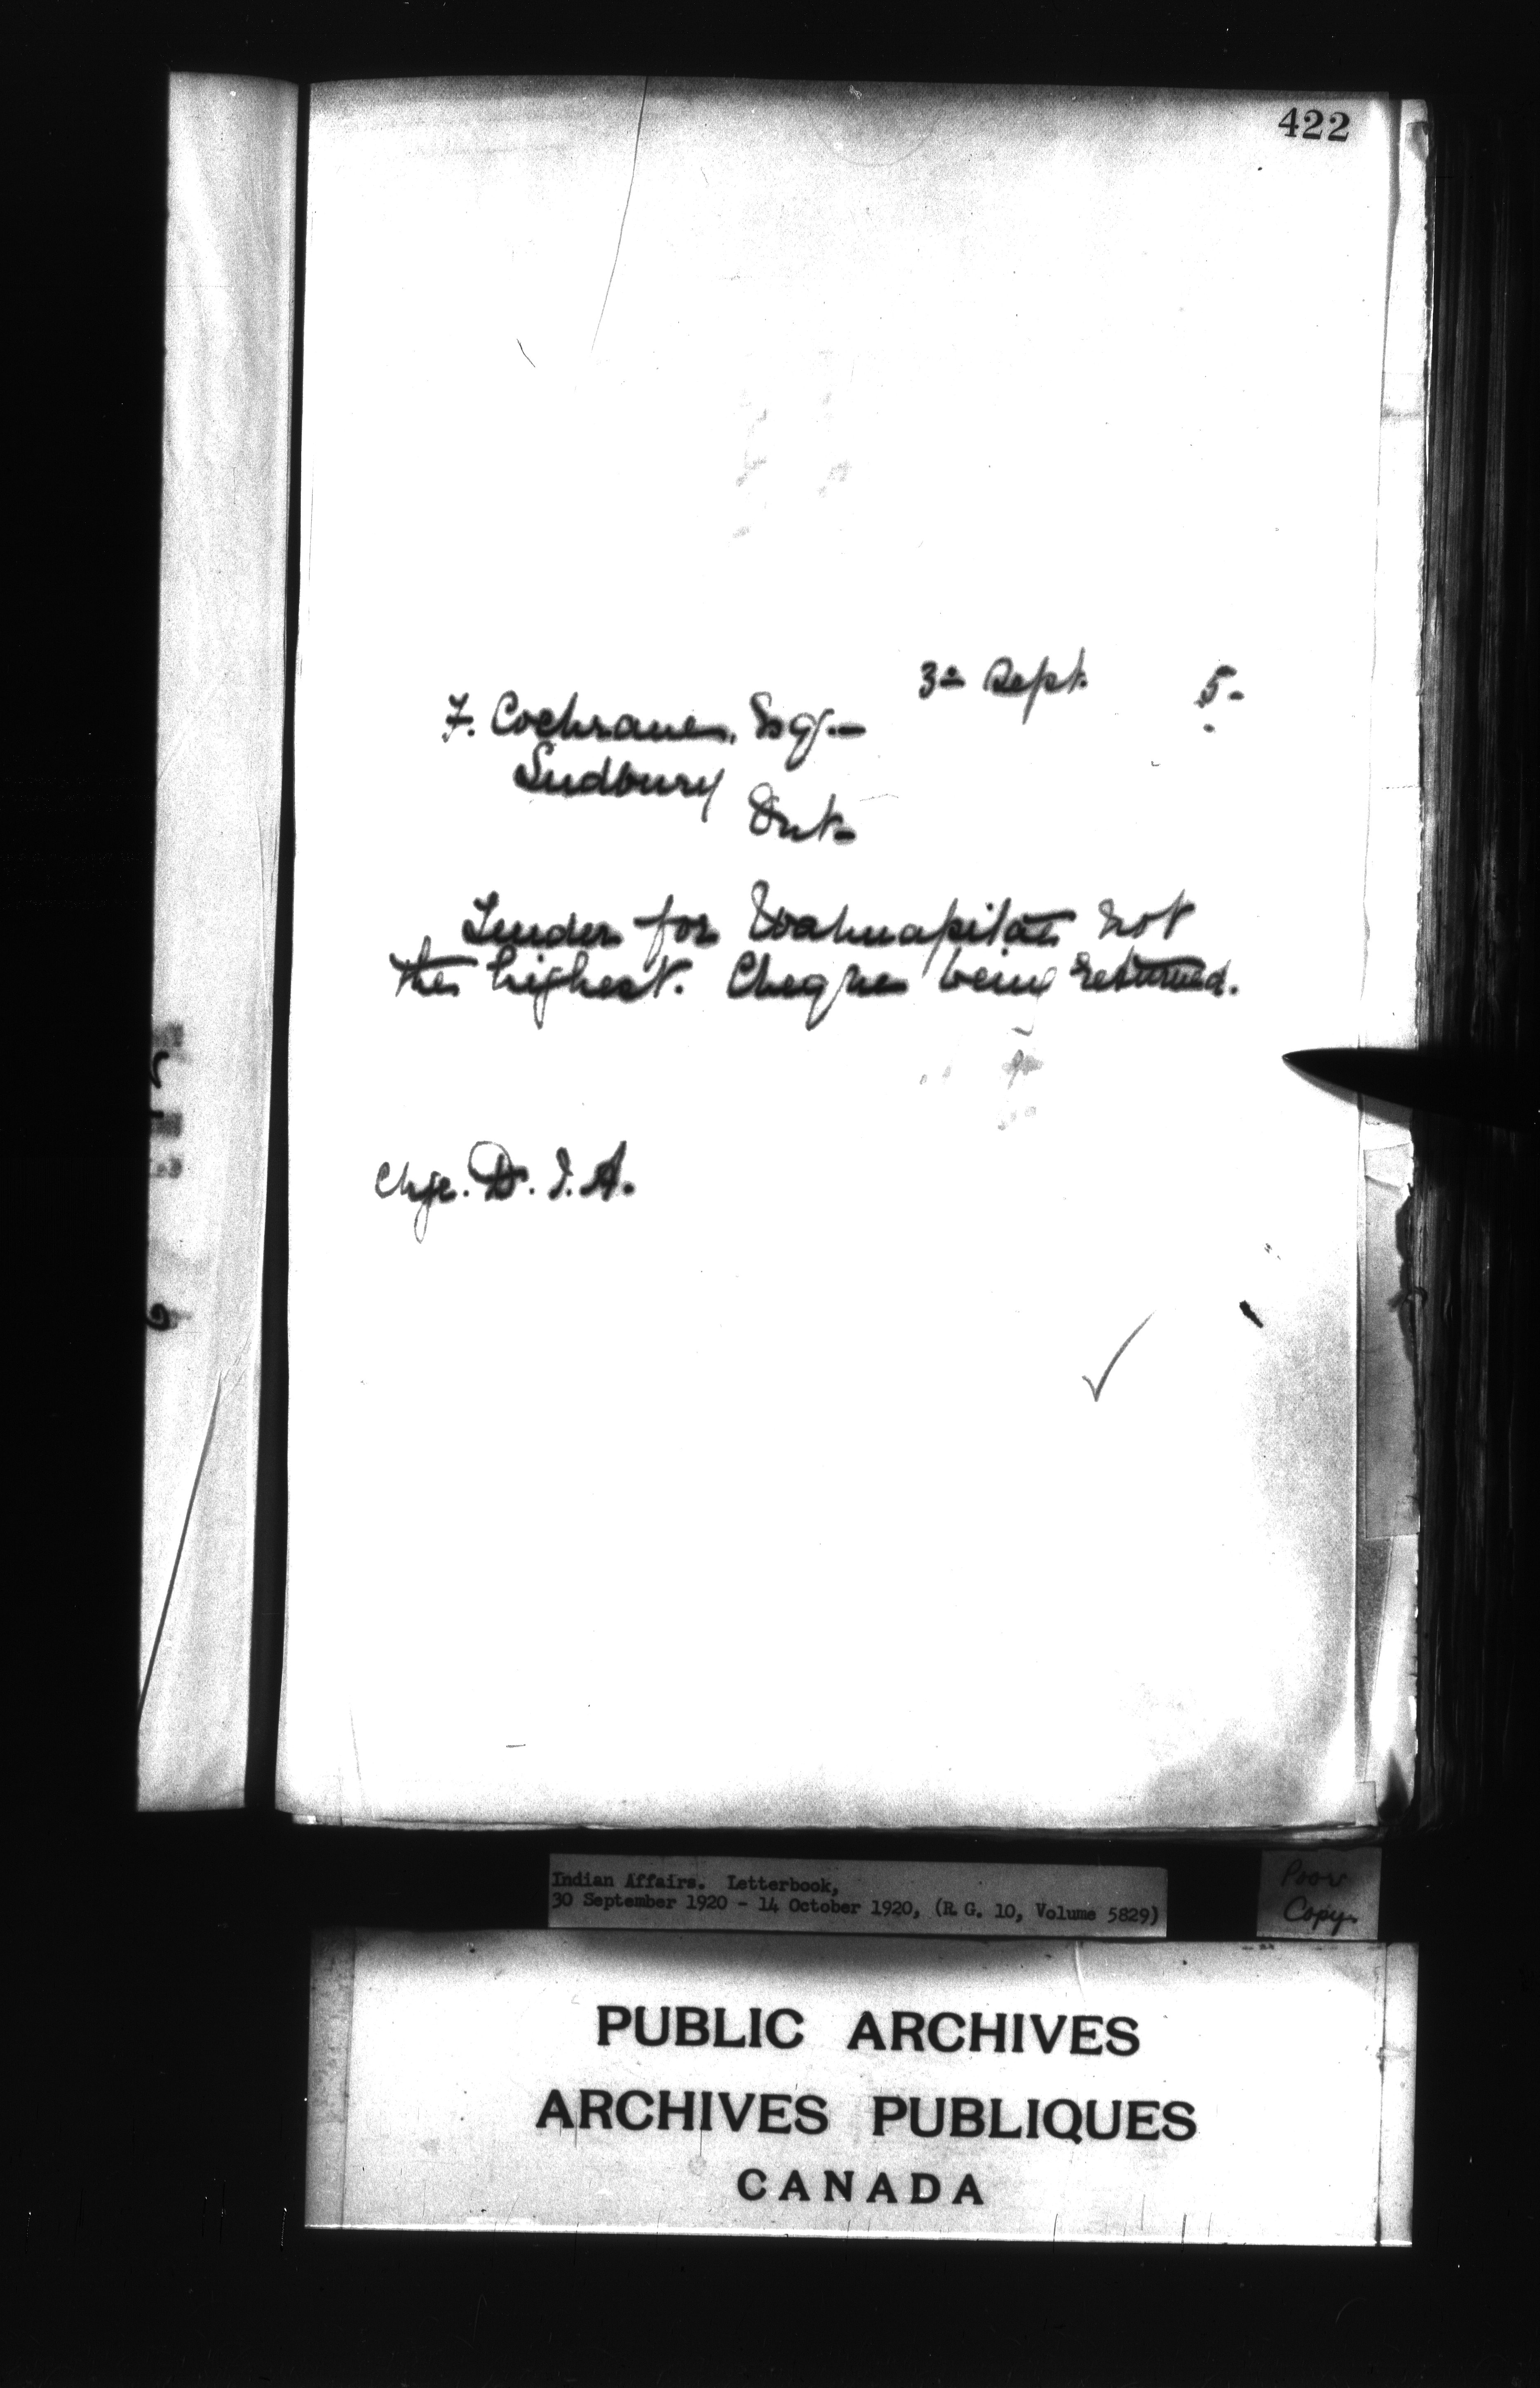 422
3rd Sept. 5.
F. Cochrane, Esq.
Sudbury
Ont.
Tender for Wahnapitae not
the highest. Cheque being returned.
Chge. D. I. A.
Indian Affairs. Letterbook,
30 September 1920 - 14 October 1920, (R.G. 10, Volume 5829)
Poor
Copy
PUBLIC ARCHIVES
ARCHIVES PUBLIQUES
CANADA